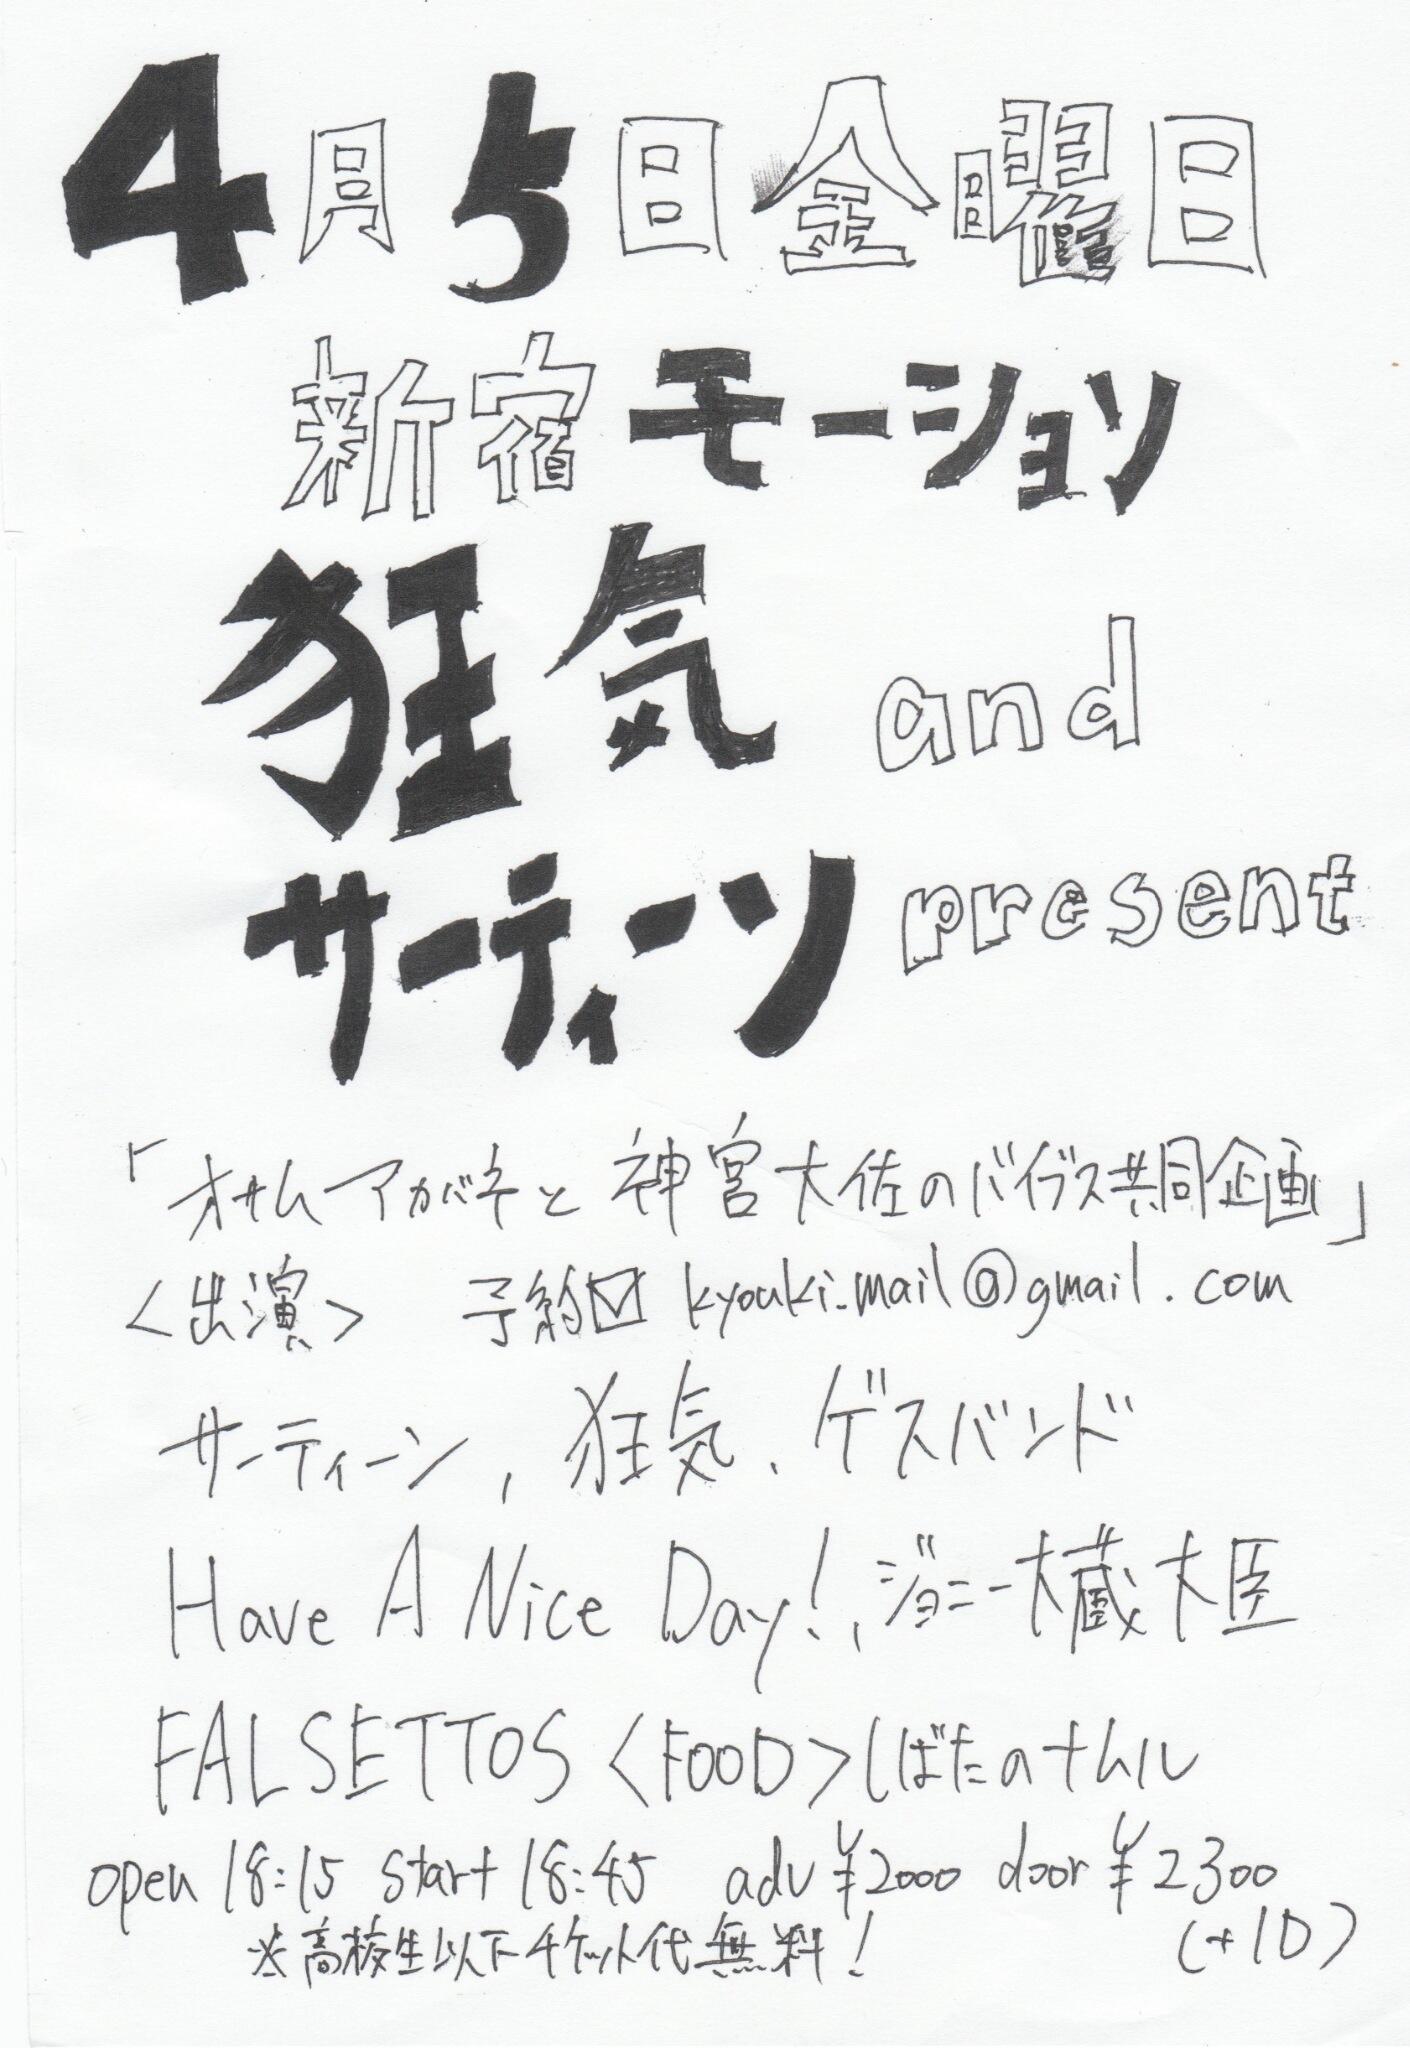 4月5日金曜日
新宿モーション
狂気 and
サーティーン present
「オサムーアカバネと神宮大佐のバイブス共同企画」
<出演> 予約☑ kyouki_mail@gmail.com
サーティーン, 狂気、ゲスバンド
Have A Nice Day!, ジョニー大蔵大臣
FALSETTOS <FOOD>しばたのナムル
open 18:15 start 18:45 adv ¥2000 door ¥2300
(+1D)
※高校生以下チケット代無料!